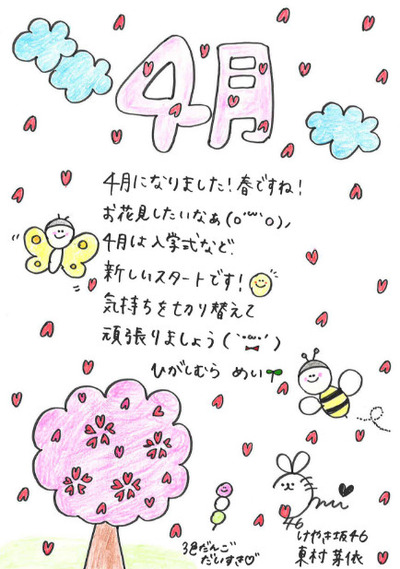 4月
4月になりました!春ですね!
お花見したいなぁ(o´ω`o)ノ
4月は入学式など、
新しいスタートです!
気持ちを切り替えて
頑張りましょう(`・ω・´)
ひがしむら めい
46
けやき坂46
東村芽依
3色だんご
だいすき♡